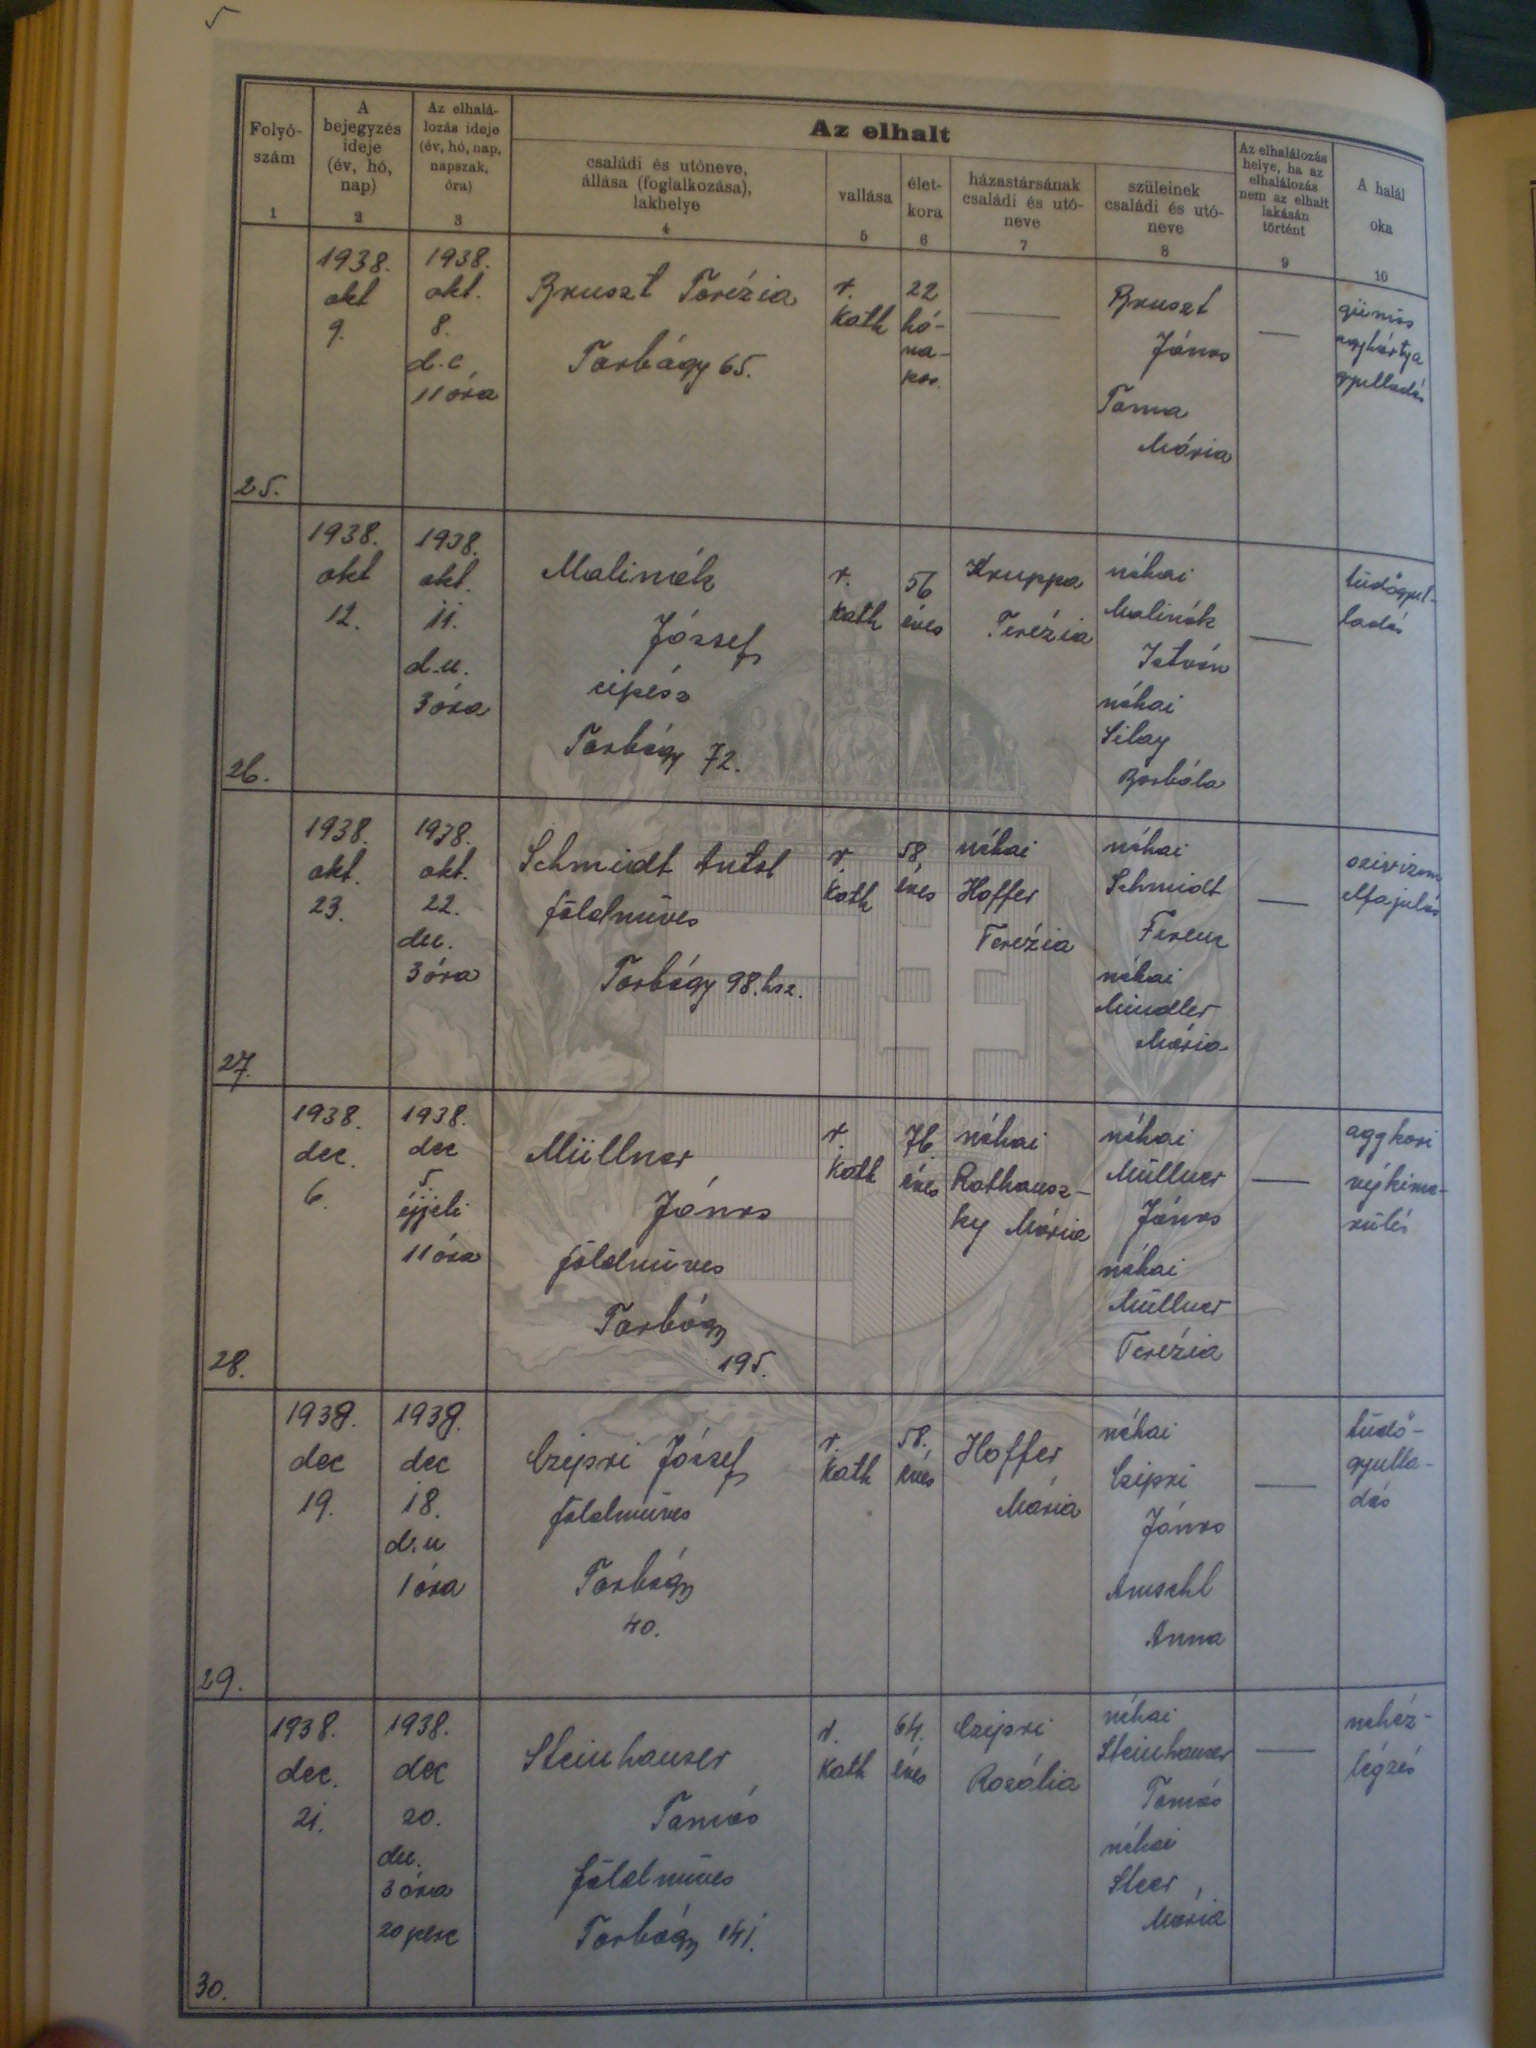 Folyó-
szám
1
A
bejegyzés
ideje
(év, hó,
nap)
2
Az elhalá-
lozás ideje
(év, hó, nap,
napszak,
óra)
3
Az elhalt
családi és utóneve,
állása (foglalkozása),
lakhelye
4
vallása
5
élet-
kora
6
házastársának
családi és utó-
neve
7
szüleinek
családi és utó-
neve
8
Az elhalálozás
helye, ha az
elhalálozás
nem az elhalt
lakásán
történt
9
A halál
oka
10
25.
1938.
okt
9.
1938.
okt.
8.
d.e
11 óra
Bruszt Terézia
Torbágy 65.
r.
kath
22
hó-
na-
pos.
—
Bruszt
János
Mária
—
gümős
agyhártya
gyulladás
26.
1938.
okt
12.
1938.
okt.
11.
d.u.
3 óra
Malinák
József
cipész
Torbágy 72.
r.
kath
56
éves
Kruppa
Terézia
néhai
Malinák
István
néhai
Silay
Borbála
—
tüdőgyul-
ladás
27.
1938.
okt.
23.
1938.
okt.
22.
du.
3 óra
Schmidt Antal
földmüves
Torbágy 98. hsz.
r.
kath
58.
éves
néhai
Hoffer
Terézia
néhai
Schmidt
Ferenc
néhai
Mindler
Mária
—
szivizom
elfajulás
28.
1938.
dec.
6.
1938.
dec
5.
éjjeli
11 óra
Müllner
János
földmüves
Torbágy
195.
r.
kath
76
éves
néhai
Rathausz-
ky Mária
néhai
Müllner
János
néhai
Müllner
Terézia
—
aggkori
végkime-
rülés
29.
1938.
dec
19.
1938.
dec
18.
d.u
1 óra
Czipri József
földmüves
Torbágy
40.
r.
kath
58.
éves
Hoffer
Mária
néhai
Czipri
János
Amschl
Anna
—
tüdő-
gyulla-
dás
30.
1938.
dec.
21.
1938.
dec
20.
du.
3 óra
20 perc
Steinhauser
Tamás
földmüves
Torbágy 141.
r.
kath
64.
éves
Czipri
Rozália
néhai
Steinhauser
Tamás
néhai
Steer
Mária
—
nehéz-
légzés